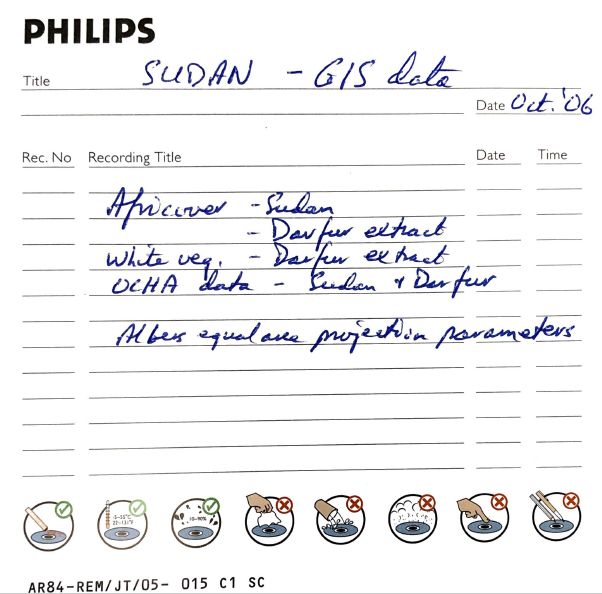 PHILIPS
Title SUDAN - GIS data
Date Oct. '06
Rec. No Recording Title Date Time
Africover - Sudan
- Darfur extract
White veg. - Darfur extract
OCHA data - Sudan & Darfur
Albers equal area projection parameters
5-55°C
22-131°F
10-90%
AR84-REM/JT/05- 015 C1 SC